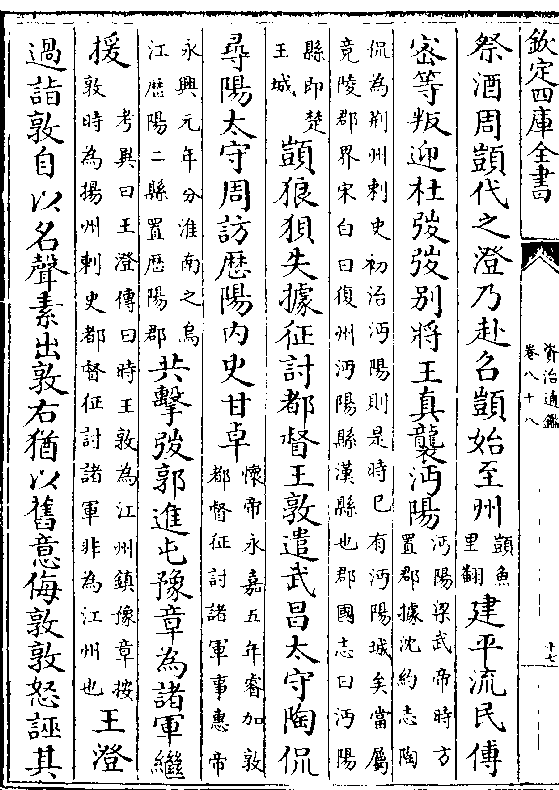 欽定四庫全書
資治通鑑
卷八十八
十七
祭酒周顗代之澄乃赴召顗始至州
顗魚
里翻
建平流民傅
密等叛迎杜弢弢别將王真襲沔陽
沔陽梁武帝時方
置郡據沈約志陶
侃為荆州刺史初治沔陽則是時已有沔陽城矣當屬
竟陵郡界宋白曰復州沔陽縣漢縣也郡國志曰沔陽
縣即楚
王城
顗狼狽失據征討都督王敦遣武昌太守陶侃
尋陽太守周訪歴陽内史甘卓
懷帝永嘉五年睿加敦
都督征討諸軍事惠帝
永興元年分淮南之烏
江歴陽二縣置歴陽郡
共擊弢郭進屯豫章為諸軍繼
援
考異曰王澄傳曰時王敦為江州鎮豫章按
敦時為揚州刺史都督征討諸軍非為江州也
王澄
過詣敦自以名聲素出敦右猶以舊意侮敦敦怒誣其